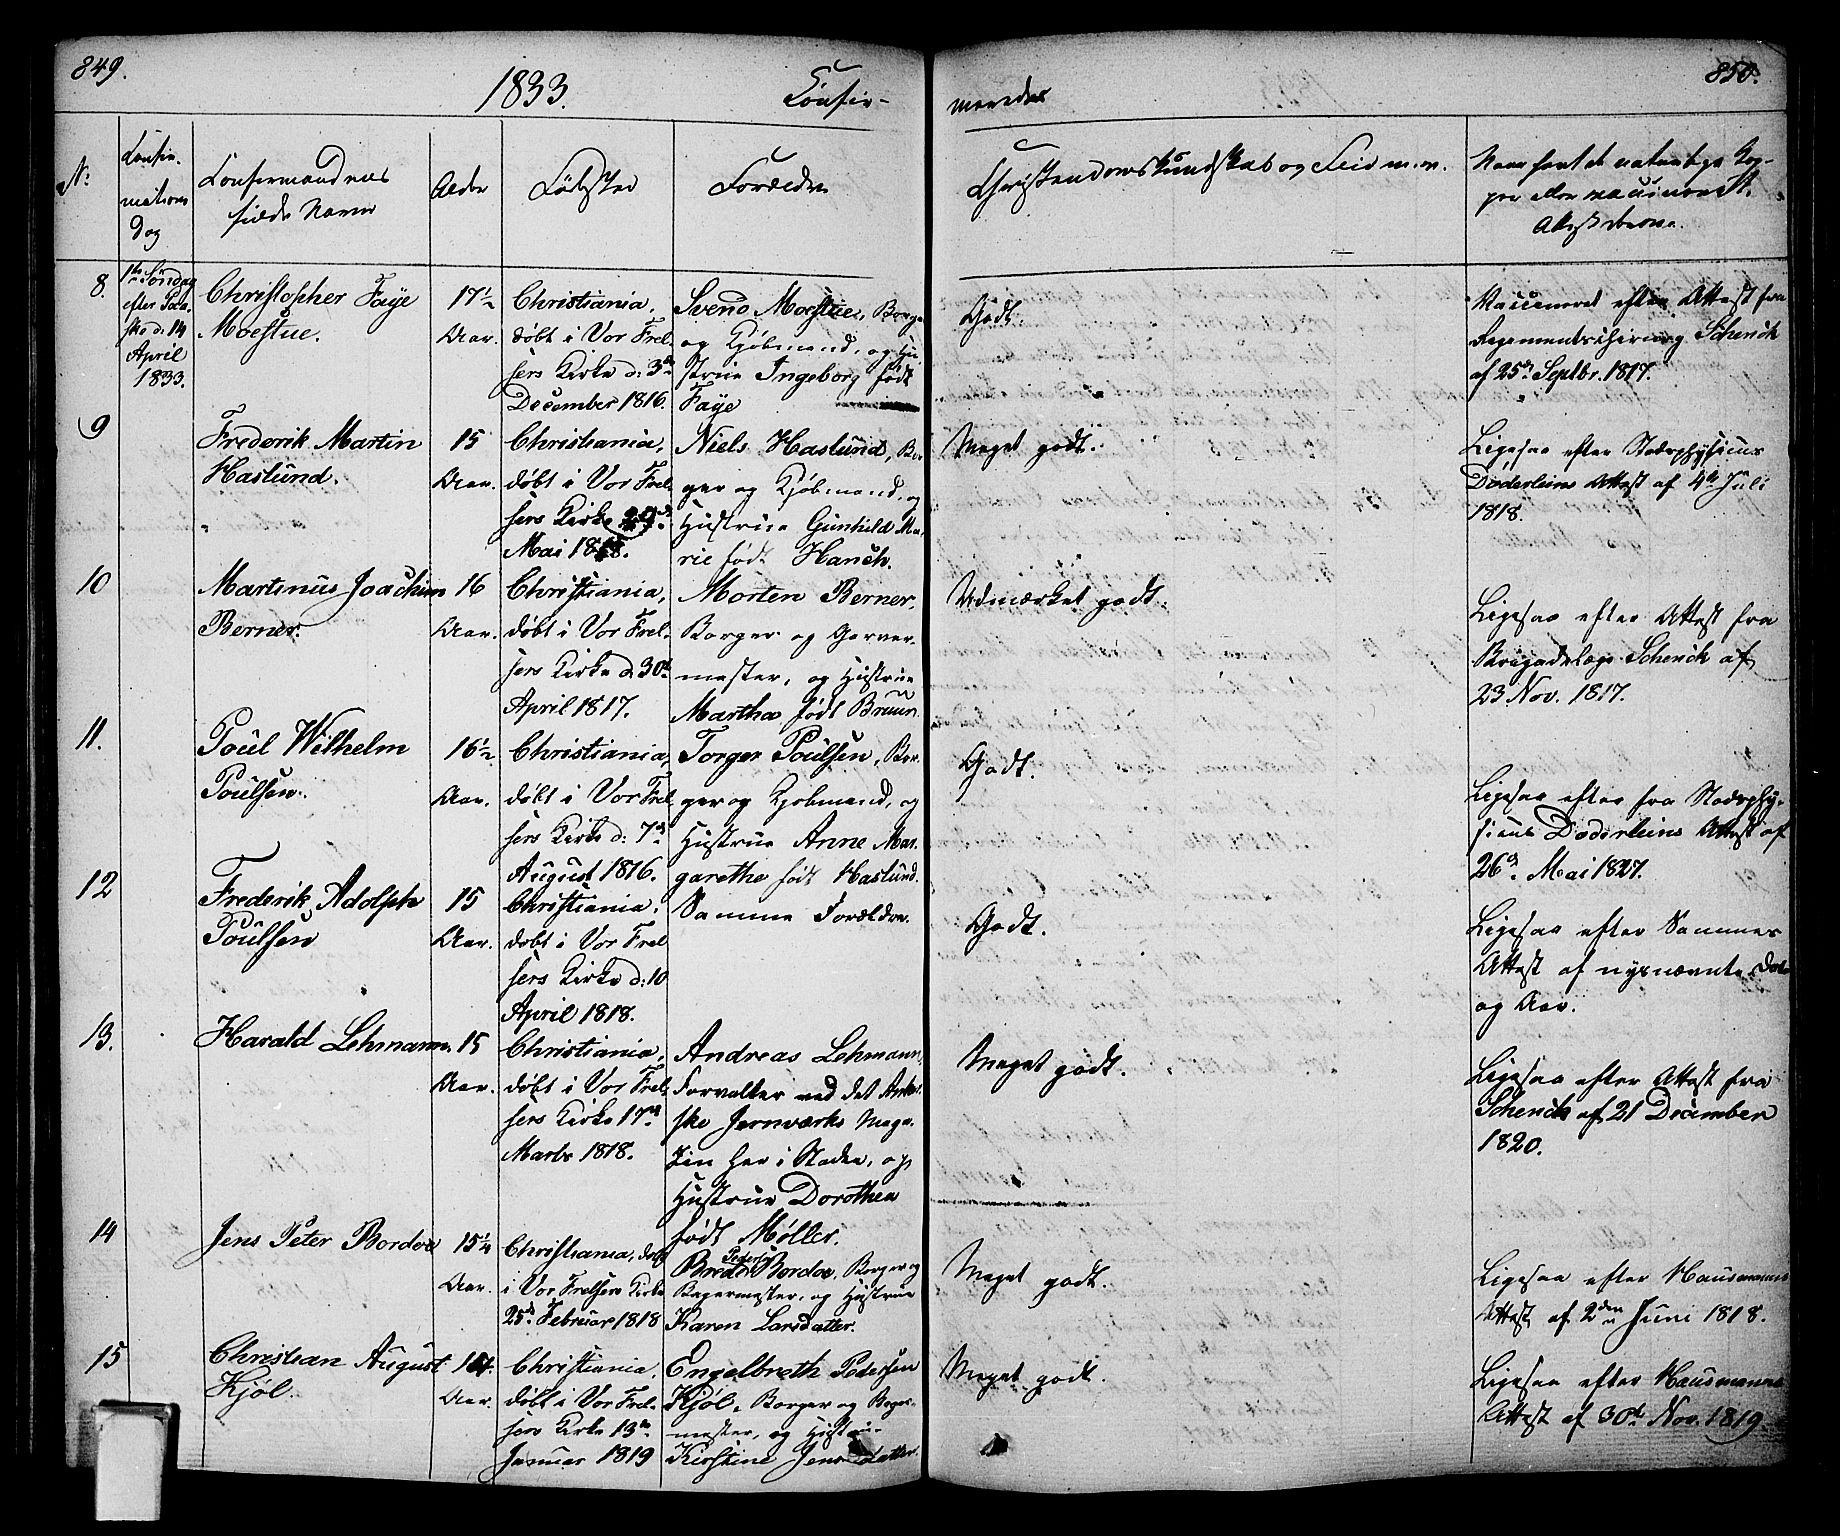 849.
1833.
Confir-
No
Confir-
mations
Dag
Confirmandens
fulde Navn
Alder
Fødested
Forældre
8.
1ste Søndag
efter Paa-
ske d. 14
April
1833.
Christopher Faye
Moestue.
17½
Aar.
Christiania,
døbt i Vor Frel-
sers Kirke d: 3de
December 1816.
Svend Moestue, Borger
og Kjøbmand, og Hu-
strue Ingeborg født
Faye
9
Frederik Martin
Haslund.
15
Aar.
Christiania,
døbt i Vor Frel-
sers Kirke 29de
Mai 1818.
Niels Haslund, Bor-
ger og Kjøbmand, og
Hustrue Gunhild Ma-
rie født Hansch.
10
Martinus Joachim
Berner.
16
Aar.
Christiania,
døbt i Vor Frel-
sers Kirke d. 30te
April 1817.
Morten Berner,
Borger og Garver-
mester, og Hustrue
Martha født Bruun.
11.
Poul Wilhelm
Poulsen.
16½
Aar.
Christiania,
døbt i Vor Frel-
sers Kirke d: 7de
August 1816.
Torger Poulsen, Bor-
ger og Kjøbmand, og
Hustrue Anne Mar-
garethe født Haslund.
12
Frederik Adolph
Poulsen
15
Aar.
Christiania,
døbt i Vor Frel
sers Kirke d: 10
April 1818.
Samme Forældre.
13.
Harald Lehmann
15
Aar.
Christiania,
døbt i Vor Frel-
sers Kirke 17de
Marts 1818.
Andreas Lehmann,
Forvalter ved det Anker-
ske Jernværks Maga-
zin her i Staden, og
Hustrue Dorothea
født Møller.
14
Jens Peter Bordoe
15¼
Aar.
Christiania, døbt
i Vor Frelsers Kirke
25de Februar 1818
Peders:
Brede Bordoe, Borger og
Bagermester, og Hustrue
Karen Larsdatter.
15
Christian August
Kjøl.
14.
Aar.
Christiania.
døbt i Vor Frel-
sers Kirke 13de
Januar 1819
Engelbreth Pedersen
Kjøl, Borger og Bager-
mester, og Hustru-
Kirstine Jensdatter.
850.
merede
Christendomskundskab og Flid m. m.
Navn samt de naturlige Kop-
per eller vaccinerede st.
Attesterne.
Godt.
Vaccineret efter Attest fra
Regimentschirurg Schenck
af 25de Septbr. 1817.
Meget godt.
Ligesaa efter Stadsphysicus
Døderleins Attest af 4de Juli
1818.
Udmærket godt.
Ligesaa efter Attest fra
Brigadelæge Schenck af
23 Nov. 1817.
Godt.
Ligesaa efter fra Stadsphy-
sicus Døderleins Attest af
26de Mai 1827.
Godt.
Ligesaa efter Sammes
Attest af nysnævnte Dato
og Aar.
Meget godt.
Ligesaa efter Attest fra
Schenck af 21 December
1820.
Meget godt.
Ligesaa efter Hausmanns
Attest af 2den Juni 1818.
Meget godt.
Ligesaa efter Hausmanns
Attest af 30te Nov. 1819